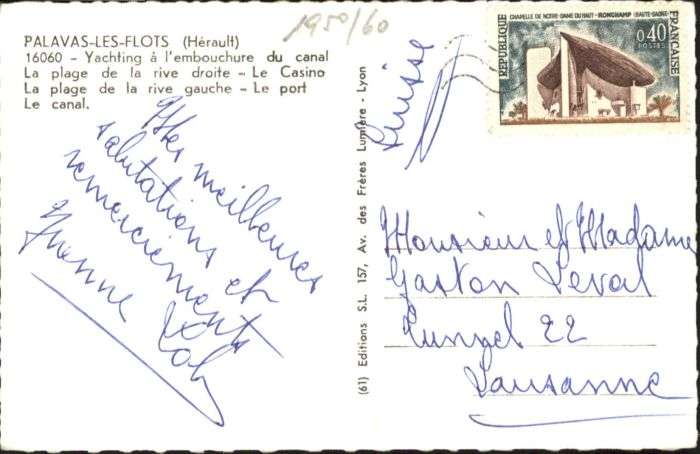 PALAVAS-LES-FLOTS (Hérault)
16060 - Yachting à l'embouchure du canal
La plage de la rive droite - Le Casino
La plage de la rive gauche - Le port
Le canal.
1950/60
Mes meilleures
salutations et
remerciements
Yvonne
(61) Editions S.L. 157, Av. des Frères Lumière - Lyon
Suisse
CHAPELLE DE NOTRE-DAME DU HAUT - RONCHAMP (HAUTE-SAÔNE)
RÉPUBLIQUE
FRANÇAISE
0,40
POSTES
Monsieur et Madame
Gaston
22
Lausanne